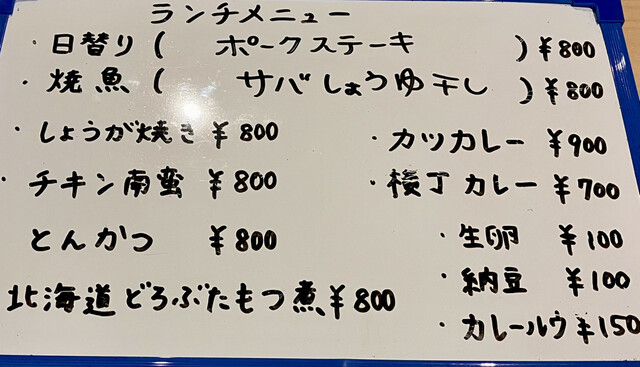 ランチメニュー
・日替り( ポークステーキ )¥800
・焼魚( サバしょうゆ干し )¥800
・しょうが焼き ¥800
・チキン南蛮 ¥800
とんかつ ¥800
北海道どろぶたもつ煮 ¥800
・カツカレー ¥900
・横丁カレー ¥700
・生卵 ¥100
・納豆 ¥100
・カレールウ ¥150